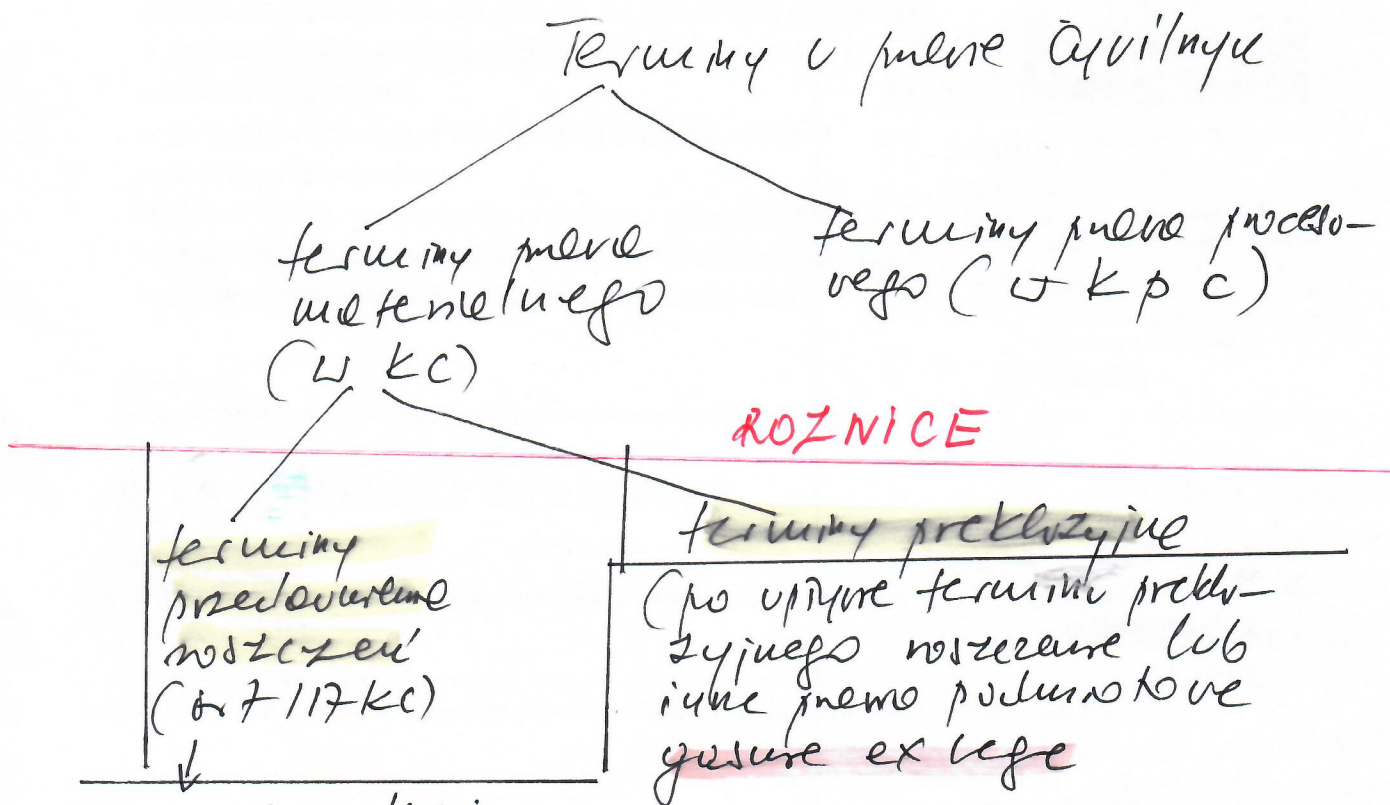 Terminy w prawie cywilnym
terminy prawa
materialnego
(w kc)
terminy prawa proceso-
wego (w kpc)
ROZNICE
terminy
przedawnienia
roszczeń
(art 117 kc)
terminy prekluzyjne
(po upływie terminu preklu-
zyjnego roszczenie lub
inne prawo podmiotowe
gaśnie ex lege